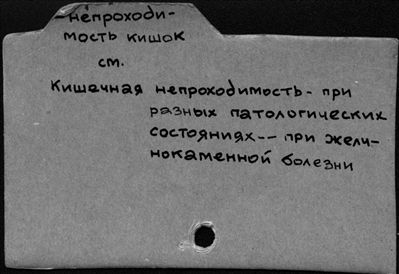 -непроходи-
мость кишок
см.
Кишечная непроходимость- при
разных патологических
состояниях-- при желч-
нокаменной болезни